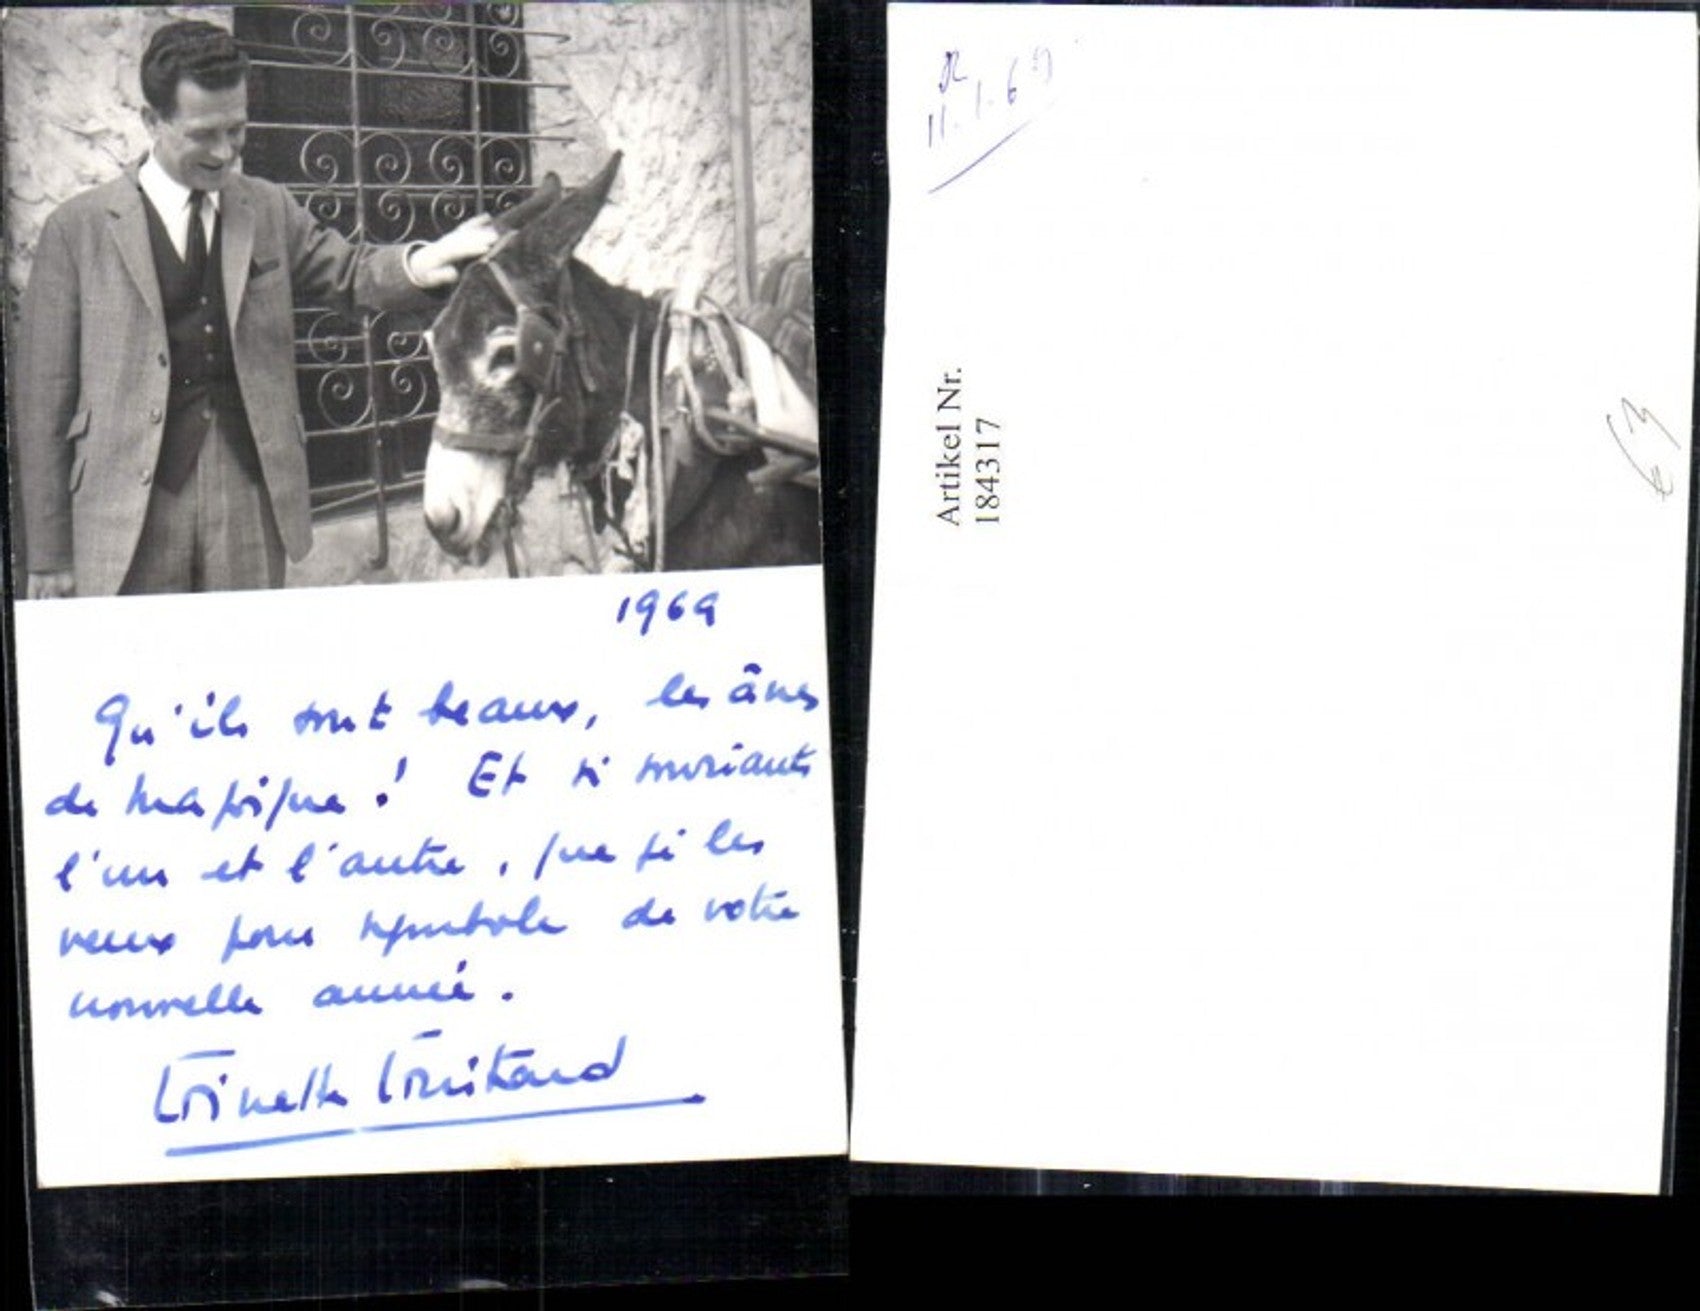 1969
Qu'ils sont beaux, les ânes
de Majorque ! Et si souriants
l'un et l'autre, que je les
veux pour symbole de votre
nouvelle année.
Toinette
R
11.1.69
Artikel Nr.
184317